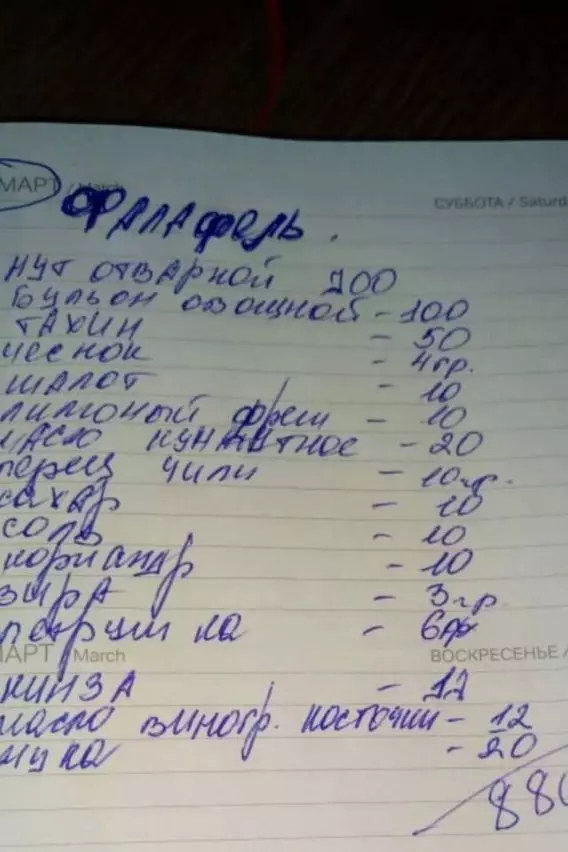 МАРТ / March
СУББОТА / Saturd
ФАЛАФЕЛЬ.
НУТ ОТВАРНОЙ 700
БУЛЬОН ОВОЩНОЙ - 100
ТАХИН - 50
ЧЕСНОК - 4гр.
ШАЛОТ - 10
ЛИМОНЫЙ фреш - 10
МАСЛО КУНЖУТНОЕ - 20
перец чили - 10гр.
сахар - 10
соль - 10
кориандр - 10
ЗИРА - 3гр
петрушка -
МАРТ / March
ВОСКРЕСЕНЬЕ /
КИНЗА - 12
масло виногр. косточки - 12
мука - 20